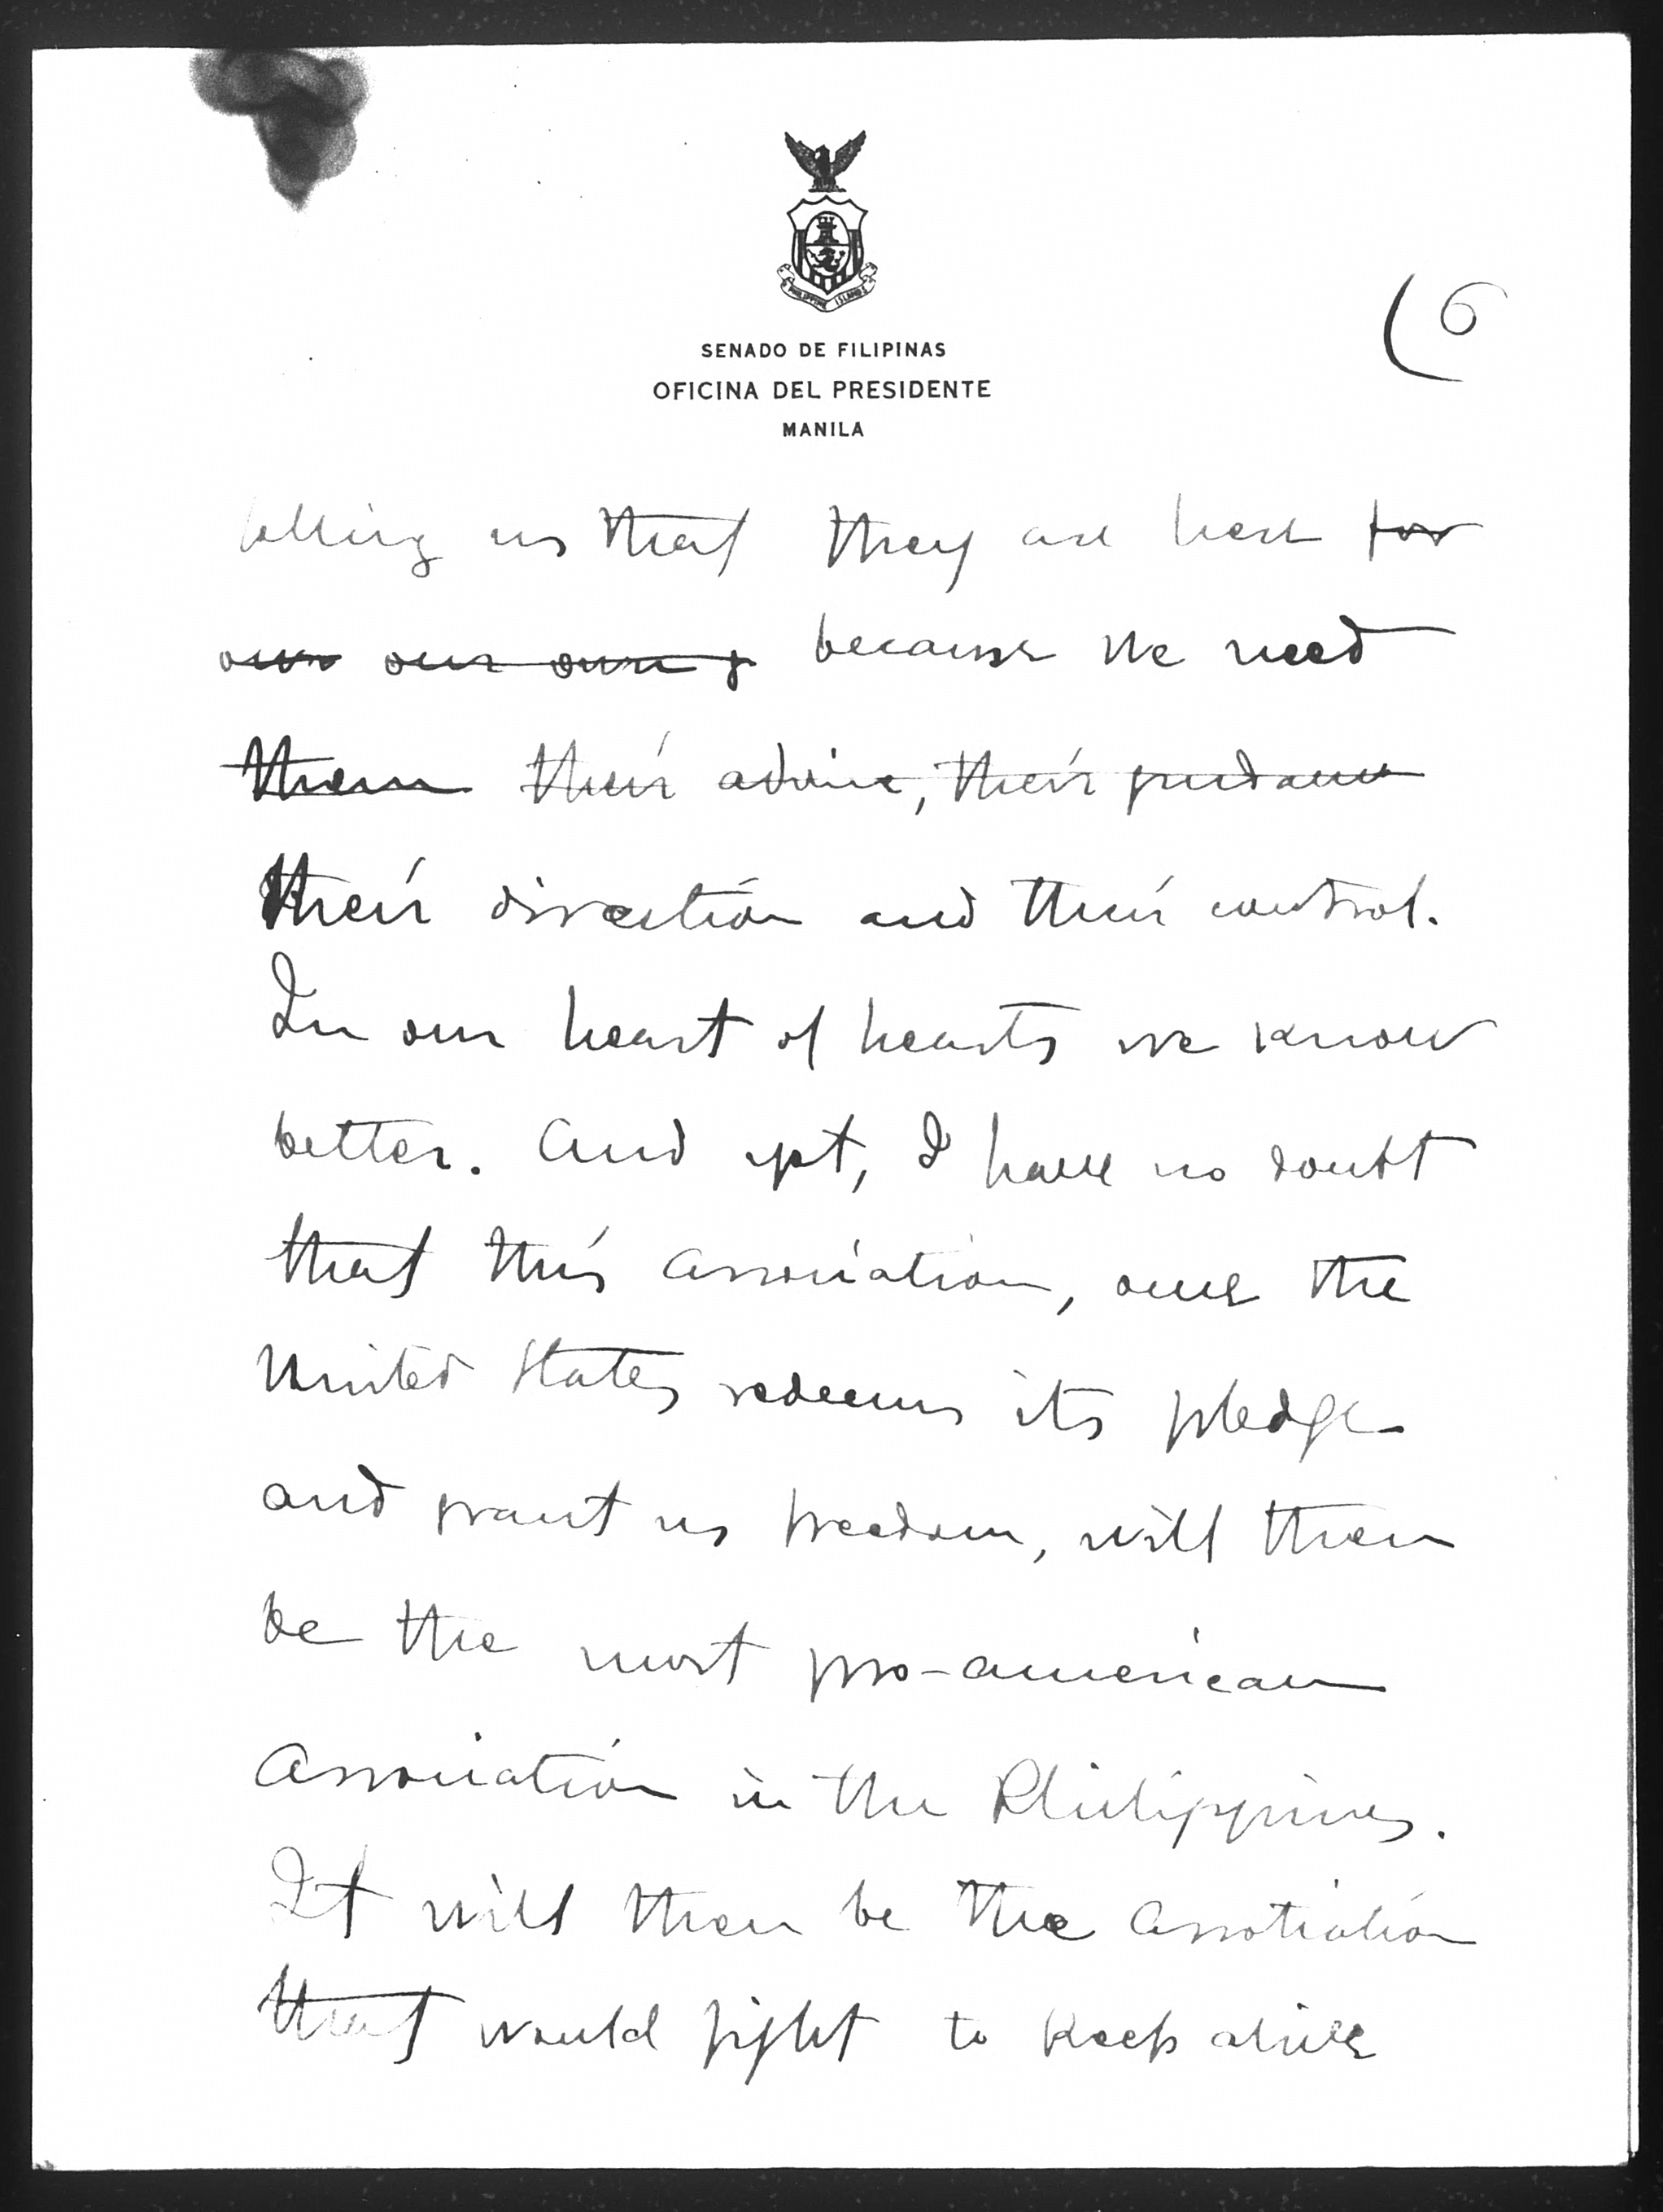 PHILIPPINE ISLANDS
SENADO DE FILIPINAS
OFICINA DEL PRESIDENTE
MANILA
(6
telling us that they are here for
our our own g because we need
them their advice, their guidance
their direction and their control.
In our heart of hearts we know
better. And yet, I have no doubt
that this association, once the
United States redeems its pledge
and grant us freedom, will then
be the most pro-american
Association in the Philippines.
It will then be the Association
that would fight to keep alive